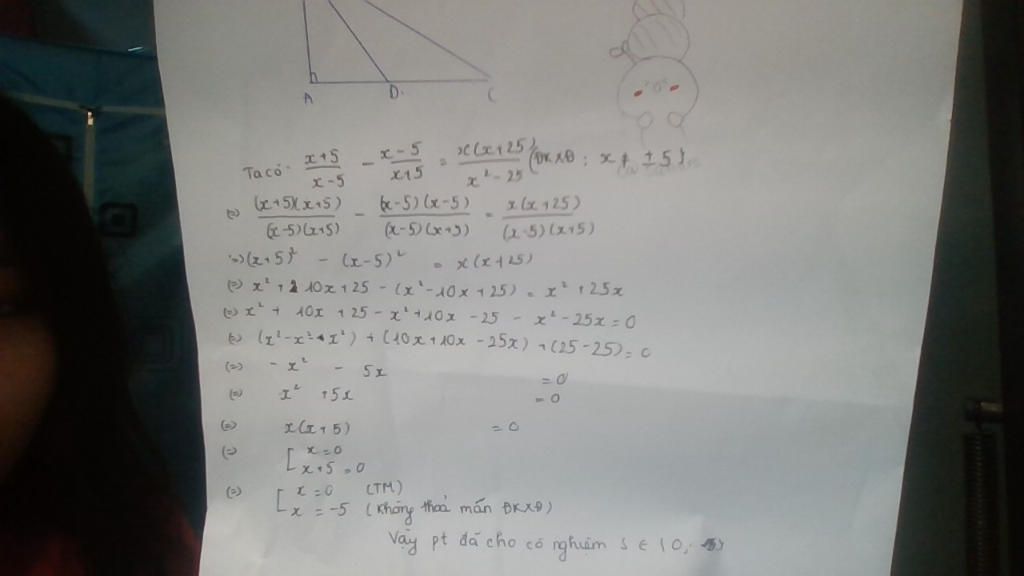 A D. C
Ta có: (x+5)/(x-5) - (x-5)/(x+5) = x(x+25)/(x²-25) (ĐKXĐ: x ≠ ±5)
(=) (x+5)(x+5)/(x-5)(x+5) - (x-5)(x-5)/(x-5)(x+5) = x(x+25)/(x-5)(x+5)
=) (x+5)² - (x-5)² = x(x+25)
(=) x² + 10x + 25 - (x² - 10x + 25) = x² + 25x
(=) x² + 10x + 25 - x² + 10x - 25 - x² - 25x = 0
(=) (x² - x² - x²) + (10x + 10x - 25x) + (25 - 25) = 0
(=) - x² - 5x = 0
(=) x² + 5x = 0
(=) x(x+5) = 0
(=) [ x = 0
x + 5 = 0
(=) [ x = 0 (TM)
x = -5 (Không thoả mãn ĐKXĐ)
Vậy pt đã cho có nghiệm S ∈ { 0;